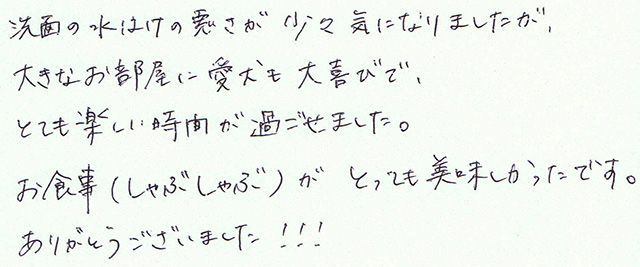 洗面の水はけの悪さが少々気になりましたが、
大きなお部屋に愛犬も大喜びで、
とても楽しい時間が過ごせました。
お食事(しゃぶしゃぶ)がとっても美味しかったです。
ありがとうございました!!!